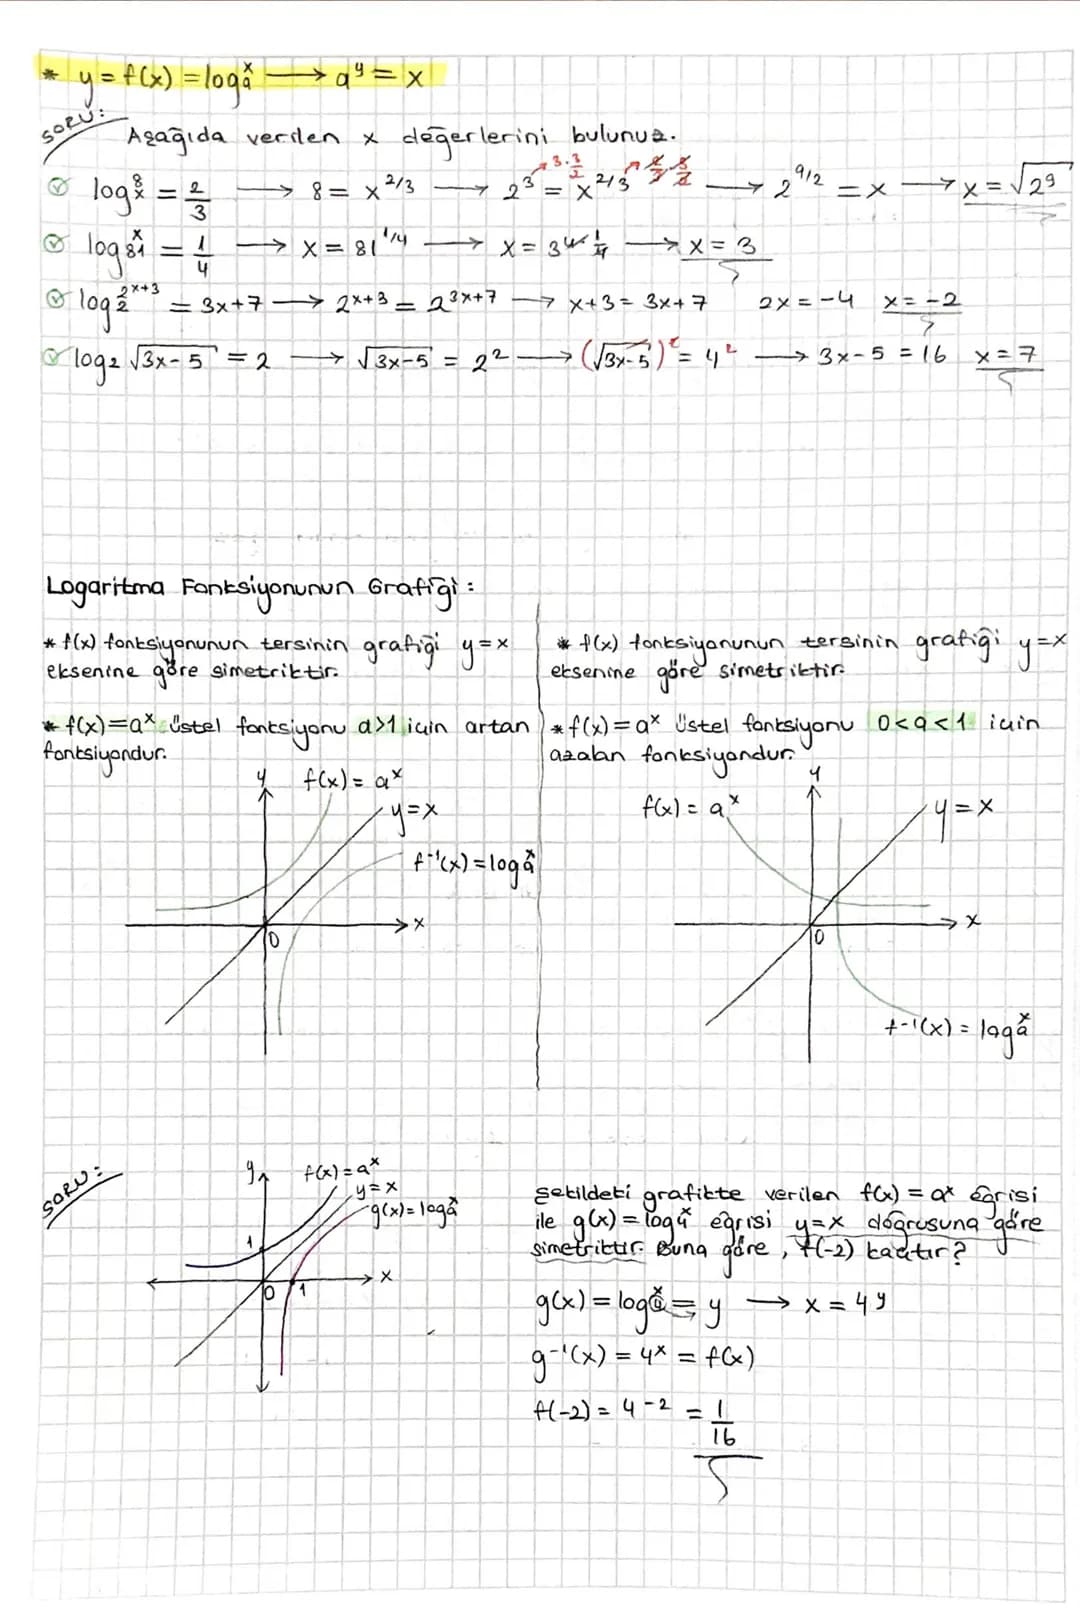 * y = f(x) = logₐx → a^y = x
SORU:
Aşağıda verilen x değerlerini bulunuz.
logₓ8 = 2/3 → 8 = x^2/3 → 2^3 = x^2/3 → 2^9/2 = x → x = √2^9
3.3/2 2/3 3/2
log₈₁x = 1/4 → x = 81^1/4 → x = 3^4·1/4 → x = 3
log₂2^x+3 = 3x+7 → 2^x+3 = 2^3x+7 → x+3 = 3x+7 2x = -4 x = -2
log₂ √3x-5 = 2 → √3x-5 = 2^2 → (√3x-5)^2 = 4^2 → 3x-5 = 16 x = 7
Logaritma Fonksiyonunun Grafiği:
* f(x) fonksiyonunun tersinin grafiği y=x
eksenine göre simetriktir.
* f(x)=a^x üstel fonksiyonu a>1 için artan
fonksiyondur.
y f(x) = a^x
y=x
f^-1(x) = logₐx
x
0
* f(x) fonksiyonunun tersinin grafiği y=x
eksenine göre simetriktir.
* f(x) = a^x üstel fonksiyonu 0<a<1 için
azalan fonksiyondur.
y
f(x) = a^x
y=x
x
0
f^-1(x) = logₐx
SORU:
y f(x) = a^x
y=x
g(x) = logₐx
1
x
0 1
Şekildeki grafikte verilen f(x) = a^x eğrisi
ile g(x) = log₄x eğrisi y=x doğrusuna göre
simetriktir. Buna göre, f(-2) kaçtır?
g(x) = log₄x = y → x = 4^y
g^-1(x) = 4^x = f(x)
f(-2) = 4^-2 = 1/16